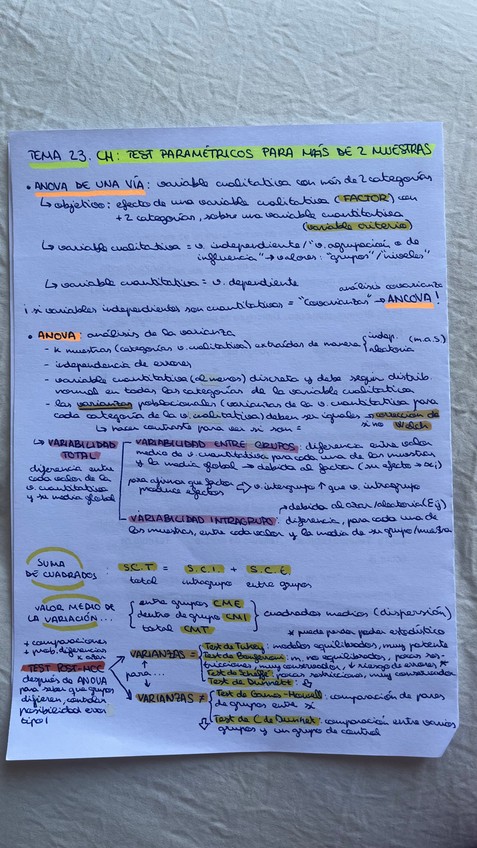 TEMA 23. CH: TEST PARAMÉTRICOS PARA MÁS DE 2 MUESTRAS
• ANOVA DE UNA VÍA: variable cualitativa con más de 2 categorías
↳ objetivo: efecto de una variable cualitativa (FACTOR) con
+ 2 categorías, sobre una variable cuantitativa
(variable criterio)
↳ variable cualitativa = v. independiente/"v. agrupación o de
influencia" → valores: "grupos"/"niveles"
↳ variable cuantitativa = v. dependiente
análisis covarianza
¡ si variables independientes son cuantitativas = "covarianzas" → ANCOVA!
• ANOVA: análisis de la varianza
- K muestras (categorías v. cualitativa) extraídas de manera { indep. (m.a.s)
aleatoria
- independencia de errores
- variable cuantitativa (al menos) discreta y debe seguir distrib.
normal en todas las categorías de la variable cualitativa
- las varianzas poblacionales (varianza de la v. cuantitativa para
cada categoría de la v. cualitativa) deben ser iguales → corrección de
↳ hacer contraste para ver si son = si no Welch
↳ VARIABILIDAD TOTAL
diferencia entre
cada valor de la
v. cuantitativa
y su media global
VARIABILIDAD ENTRE GRUPOS: diferencia entre valor
medio de v. cuantitativa para cada una de las muestras
y la media global → debida al factor (su efecto →
para afirmar que factor ⇨ v. intergrupo ↑ que v. intragrupo
produce efectos
debida al azar/aleatoria (Eij)
VARIABILIDAD INTRAGRUPO: diferencia, para cada una de
las muestras, entre cada valor y la media de su grupo/muestra
SUMA DE CUADRADOS: S.C.T = S.C.I + S.C.E
total intragrupo entre grupos
VALOR MEDIO DE LA VARIACIÓN...
entre grupos CME
dentro de grupo CMI } cuadrados medios (dispersión)
total CMT
* puede perder poder estadístico
+ comparaciones
+ prob. diferencias
x azar
TEST POST-HOC
después de ANOVA
para saber que grupos
difieren, controlar
posibilidad error
tipo 1
para...
VARIANZAS =
Test de Tukey: modelos equilibrados, muy potente
Test de Bonferroni: m. no equilibrados, pocas res-
tricciones, muy conservador, ↓ riesgo de errores *
Test de Scheffé: pocas restricciones, muy conservador
Test de Dunnett:
VARIANZAS ≠
Test de Games-Howell: comparación de pares
de grupos entre sí
Test de C de Dunnet: comparación entre varios
grupos y un grupo de control